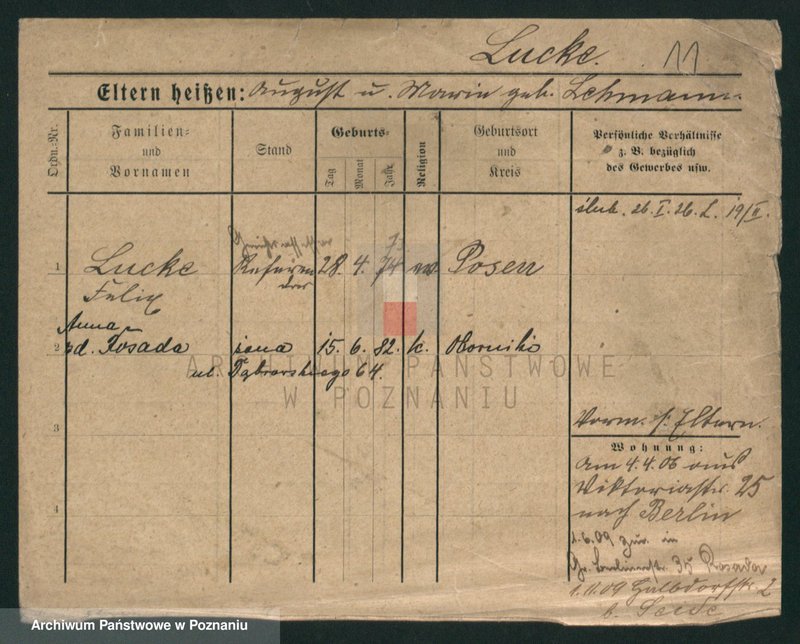 Lucke. 11
Eltern heißen: August u. Marie geb. Lehmann.
Ordn.-Nr.
Familien-
und
Vornamen
Stand
Geburts-
Tag
Monat
Jahr
Religion
Geburtsort
und
Kreis
Persönliche Verhältnisse
z. B. bezüglich
des Gewerbes usw.
ślub. 26. I. 26.
1 Lucke Referen 28. 4. 74 ev Posen
Felix dar
Anna
2 zd. Rosada żona 15. 6. 82. k. Oborniki
ul. Dąbrowskiego 64.
3
4
Vorm. s. Eltern.
Wohnung:
Am 4.4.06 aus
Viktoriastr. 25
nach Berlin
1.6.09 zur. in
Gr. Berlinerstr. 35 Rosada
1.11.09 2
b.
ARCHIWUM PAŃSTWOWE
W POZNANIU
Archiwum Państwowe w Poznaniu